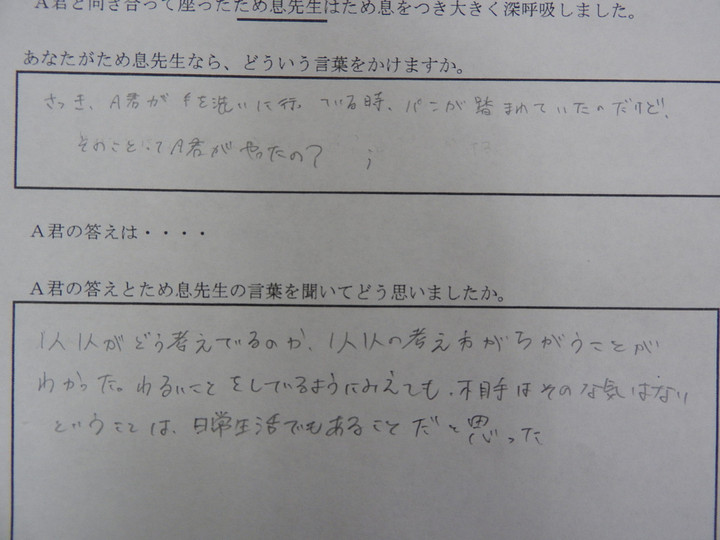 A君と向き合って座ったため息先生はため息をつき大きく深呼吸しました。
あなたがため息先生なら、どういう言葉をかけますか。
さっき、A君が手を洗いに行っている時、パンが踏まれていたのだけど、
そのことってA君がやったの？
A君の答えは・・・・
A君の答えとため息先生の言葉を聞いてどう思いましたか。
1人1人がどう考えているのか、1人1人の考え方がちがうことが
わかった。わるいことをしているようにみえても、相手はそのな気はない
ということは、日常生活でもあることだと思った